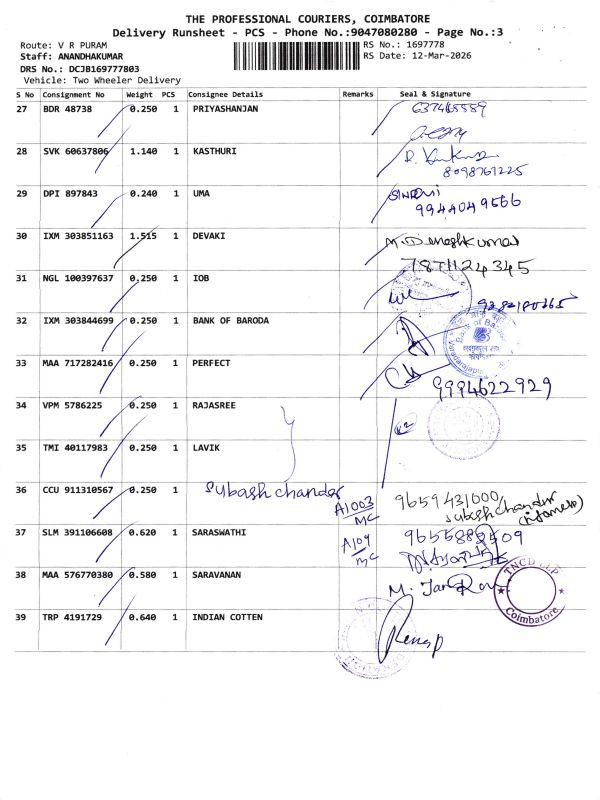 THE PROFESSIONAL COURIERS, COIMBATORE
Delivery Runsheet - PCS - Phone No.:9047080280 - Page No.:3
Route: V R PURAM
RS No.: 1697778
Staff: ANANDHAKUMAR
RS Date: 12-Mar-2026
DRS No.: DCJB169777803
Vehicle: Two Wheeler Delivery
S No Consignment No Weight PCS Consignee Details Remarks Seal & Signature
27 BDR 48738 0.250 1 PRIYASHANJAN
28 SVK 60637806 1.140 1 KASTHURI
8098761225
29 DPI 897843 0.240 1 UMA
9944049566
30 IXM 303851163 1.515 1 DEVAKI M. Dineshkumar
7871124345
31 NGL 100397637 0.250 1 IOB
32 IXM 303844699 0.250 1 BANK OF BARODA
Bank of Baroda
33 MAA 717282416 0.250 1 PERFECT
9994622929
34 VPM 5786225 0.250 1 RAJASREE
35 TMI 40117983 0.250 1 LAVIK
36 CCU 911310567 0.250 1 Subash chander A1003 MC 9659431000
Subash Chander
37 SLM 391106608 0.620 1 SARASWATHI A109 MC
38 MAA 576770380 0.580 1 SARAVANAN M.
TNCD LLP
Coimbatore
39 TRP 4191729 0.640 1 INDIAN COTTEN